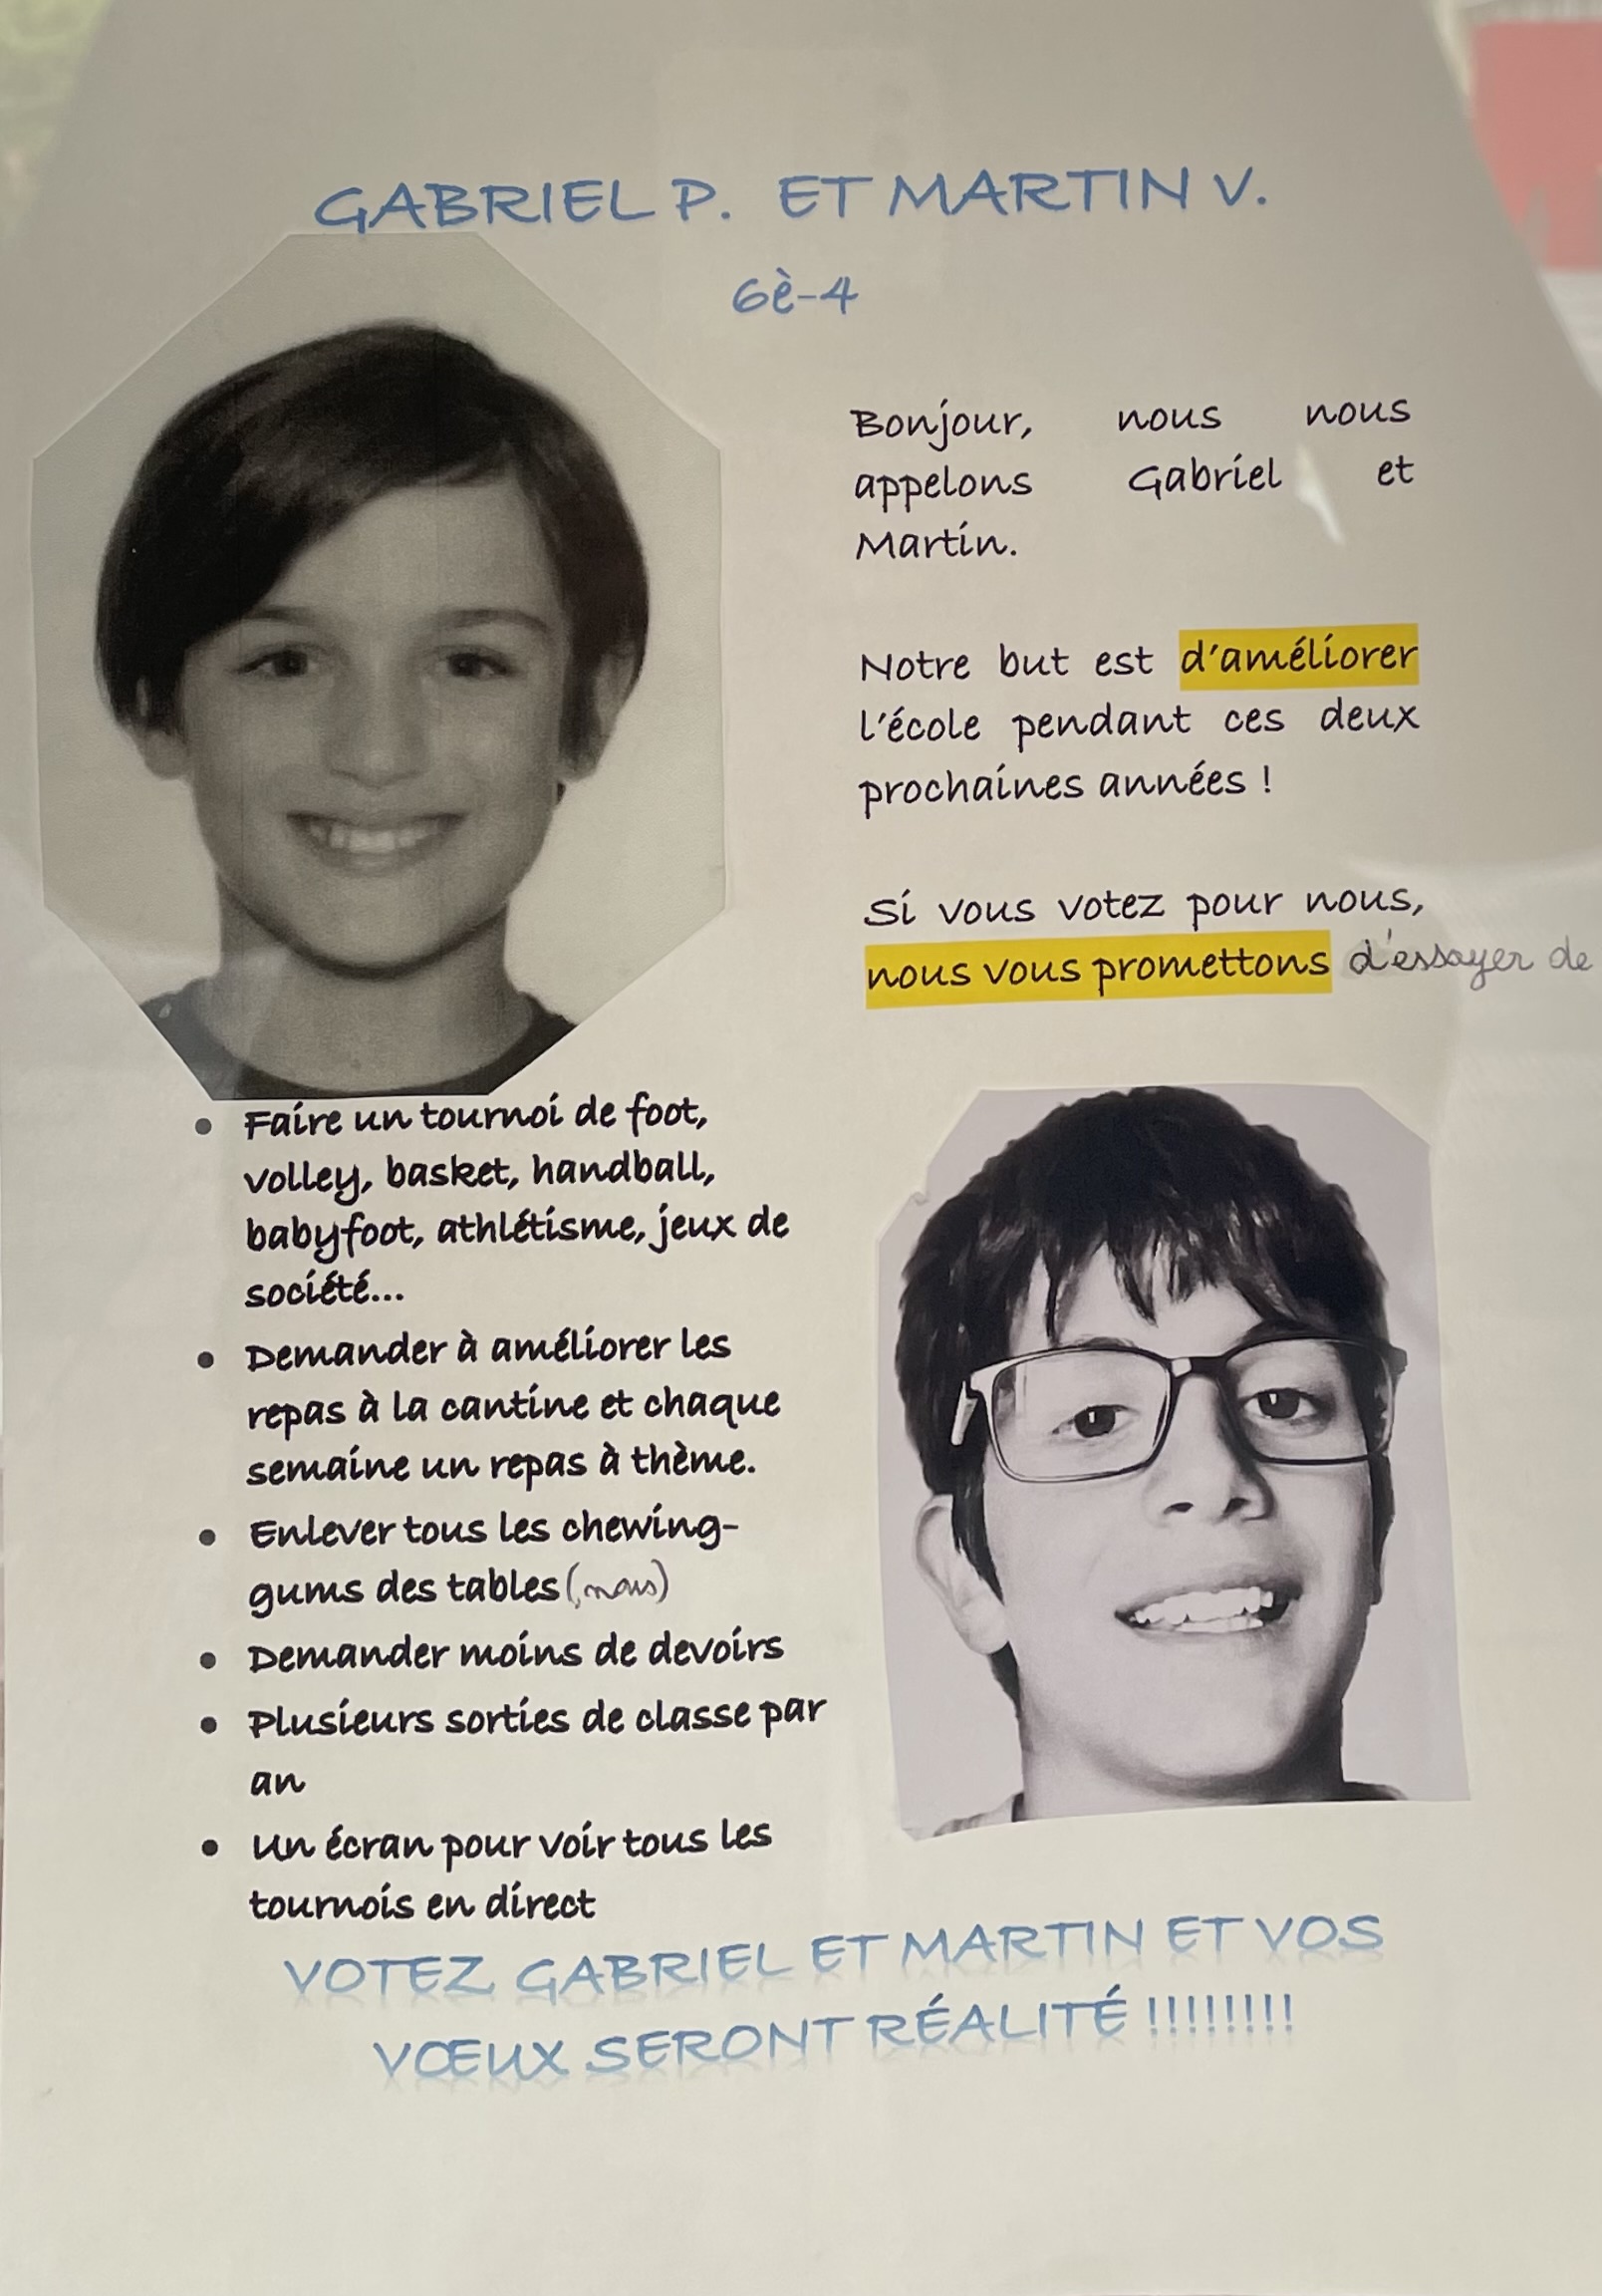 GABRIEL P. ET MARTIN V.
6è-4
Bonjour, nous nous
appelons Gabriel et
Martin.
Notre but est d'améliorer
l'école pendant ces deux
prochaines années !
Si vous votez pour nous,
nous vous promettons d'essayer de
• Faire un tournoi de foot,
volley, basket, handball,
babyfoot, athlétisme, jeux de
société...
• Demander à améliorer les
repas à la cantine et chaque
semaine un repas à thème.
• Enlever tous les chewing-
gums des tables (nous)
• Demander moins de devoirs
• Plusieurs sorties de classe par
an
• Un écran pour voir tous les
tournois en direct
VOTEZ GABRIEL ET MARTIN ET VOS
VŒUX SERONT RÉALITÉ !!!!!!!!